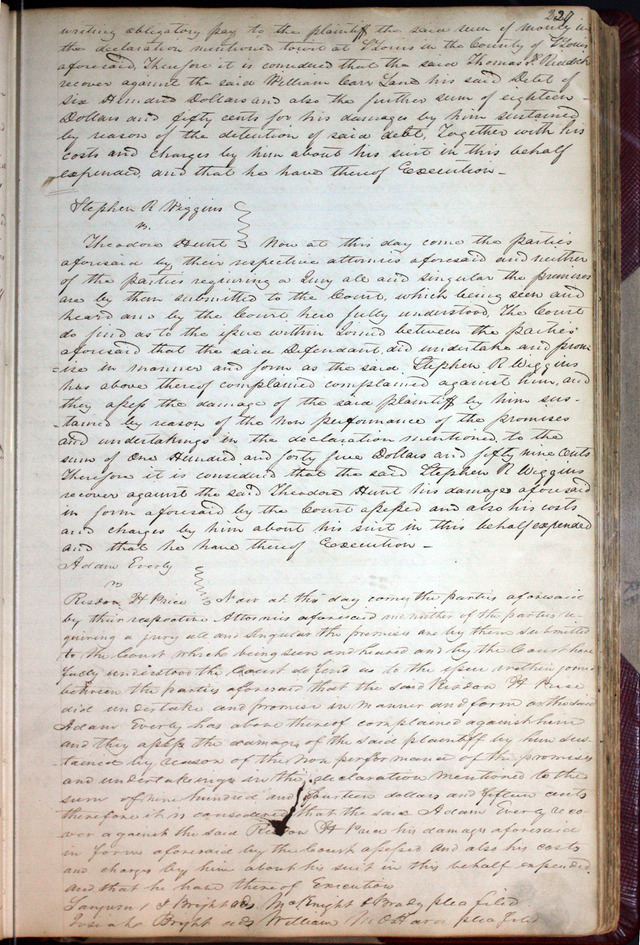 227
writing obligatory pay to the plaintiff the said sum of money in
the declaration mentioned towit at St Louis in the County of St Louis
aforesaid. Therefore it is considered that the said Thomas F Riddick
recover against the said William Carr Lane his said Debt of
Six Hundred Dollars and also the further sum of eighteen
Dollars and fifty cents for his damages by him sustained
by reason of the detention of said debt, Together with his
costs and charges by him about his suit in this behalf
expended and that he have thereof Execution –
Stephen R Wiggins
vs.
Theodore Hunt Now at this day come the parties
aforesaid by their respective attornies aforesaid and neither
of the parties requiring a Jury all and singular the premises
are by them submitted to the Court, which being seen and
heard and by the Court here fully understood, The Court
do find as to the issue within Joined between the parties
aforesaid that the said Defendant did undertake and prom
=ise in manner and form as the said Stephen R Wiggins
has above thereof complained complained against him, and
they assess the damage of the said plaintiff by him sus-
-tained by reason of the non performance of the promises
and undertakings in the declaration mentioned, to the
sum of One Hundred and forty five Dollars and fifty nine Cents
Therefore it is considered that the said Stephen R Wiggins
recover against the said Theodore Hunt his damages aforesaid
in form aforesaid by the Court assessed and also his costs
and charges by him about his suit in this behalf expended
and that he have thereof Execution –
Adam Everly
vs
Risdon H Price Now at this day comes the parties aforesaid
by their respective Attornies aforesaid and neither of the parties re
quiring a jury all and singular the premises are by them submitted
to the Court which being seen and heard and by the Court here
fully understood the Court do find as to the issue within joined
between the parties aforesaid that the said Risdon H Price
did undertake and promise in manner and form as the said
Adam Everly has above thereof complained against him
and they assess the damages of the said plaintiff by him sus
tained by reason of the non performance of the promises
and undertakings in the declaration mentioned to the
sum of nine hundred and fourteen dollars and fifteen cents
therefore it is considered that the said Adam Everly reco
ver against the said Risdon H Price his damages aforesaid
in form aforesaid by the Court assessed and also his costs
and charges by him about his suit in this behalf expended
and that he have thereof Execution
I Bright ads McKnight & Brady plea filed
Josiah Bright ads William M O Hara plea filed